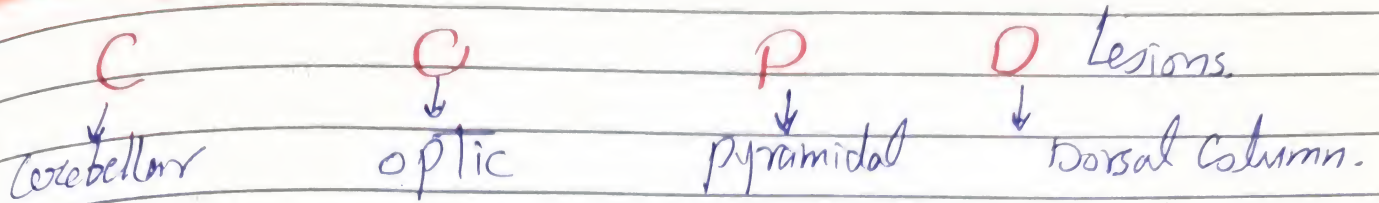 C O P D Lesions.
Cerebellar optic pyramidal Dorsal Column.